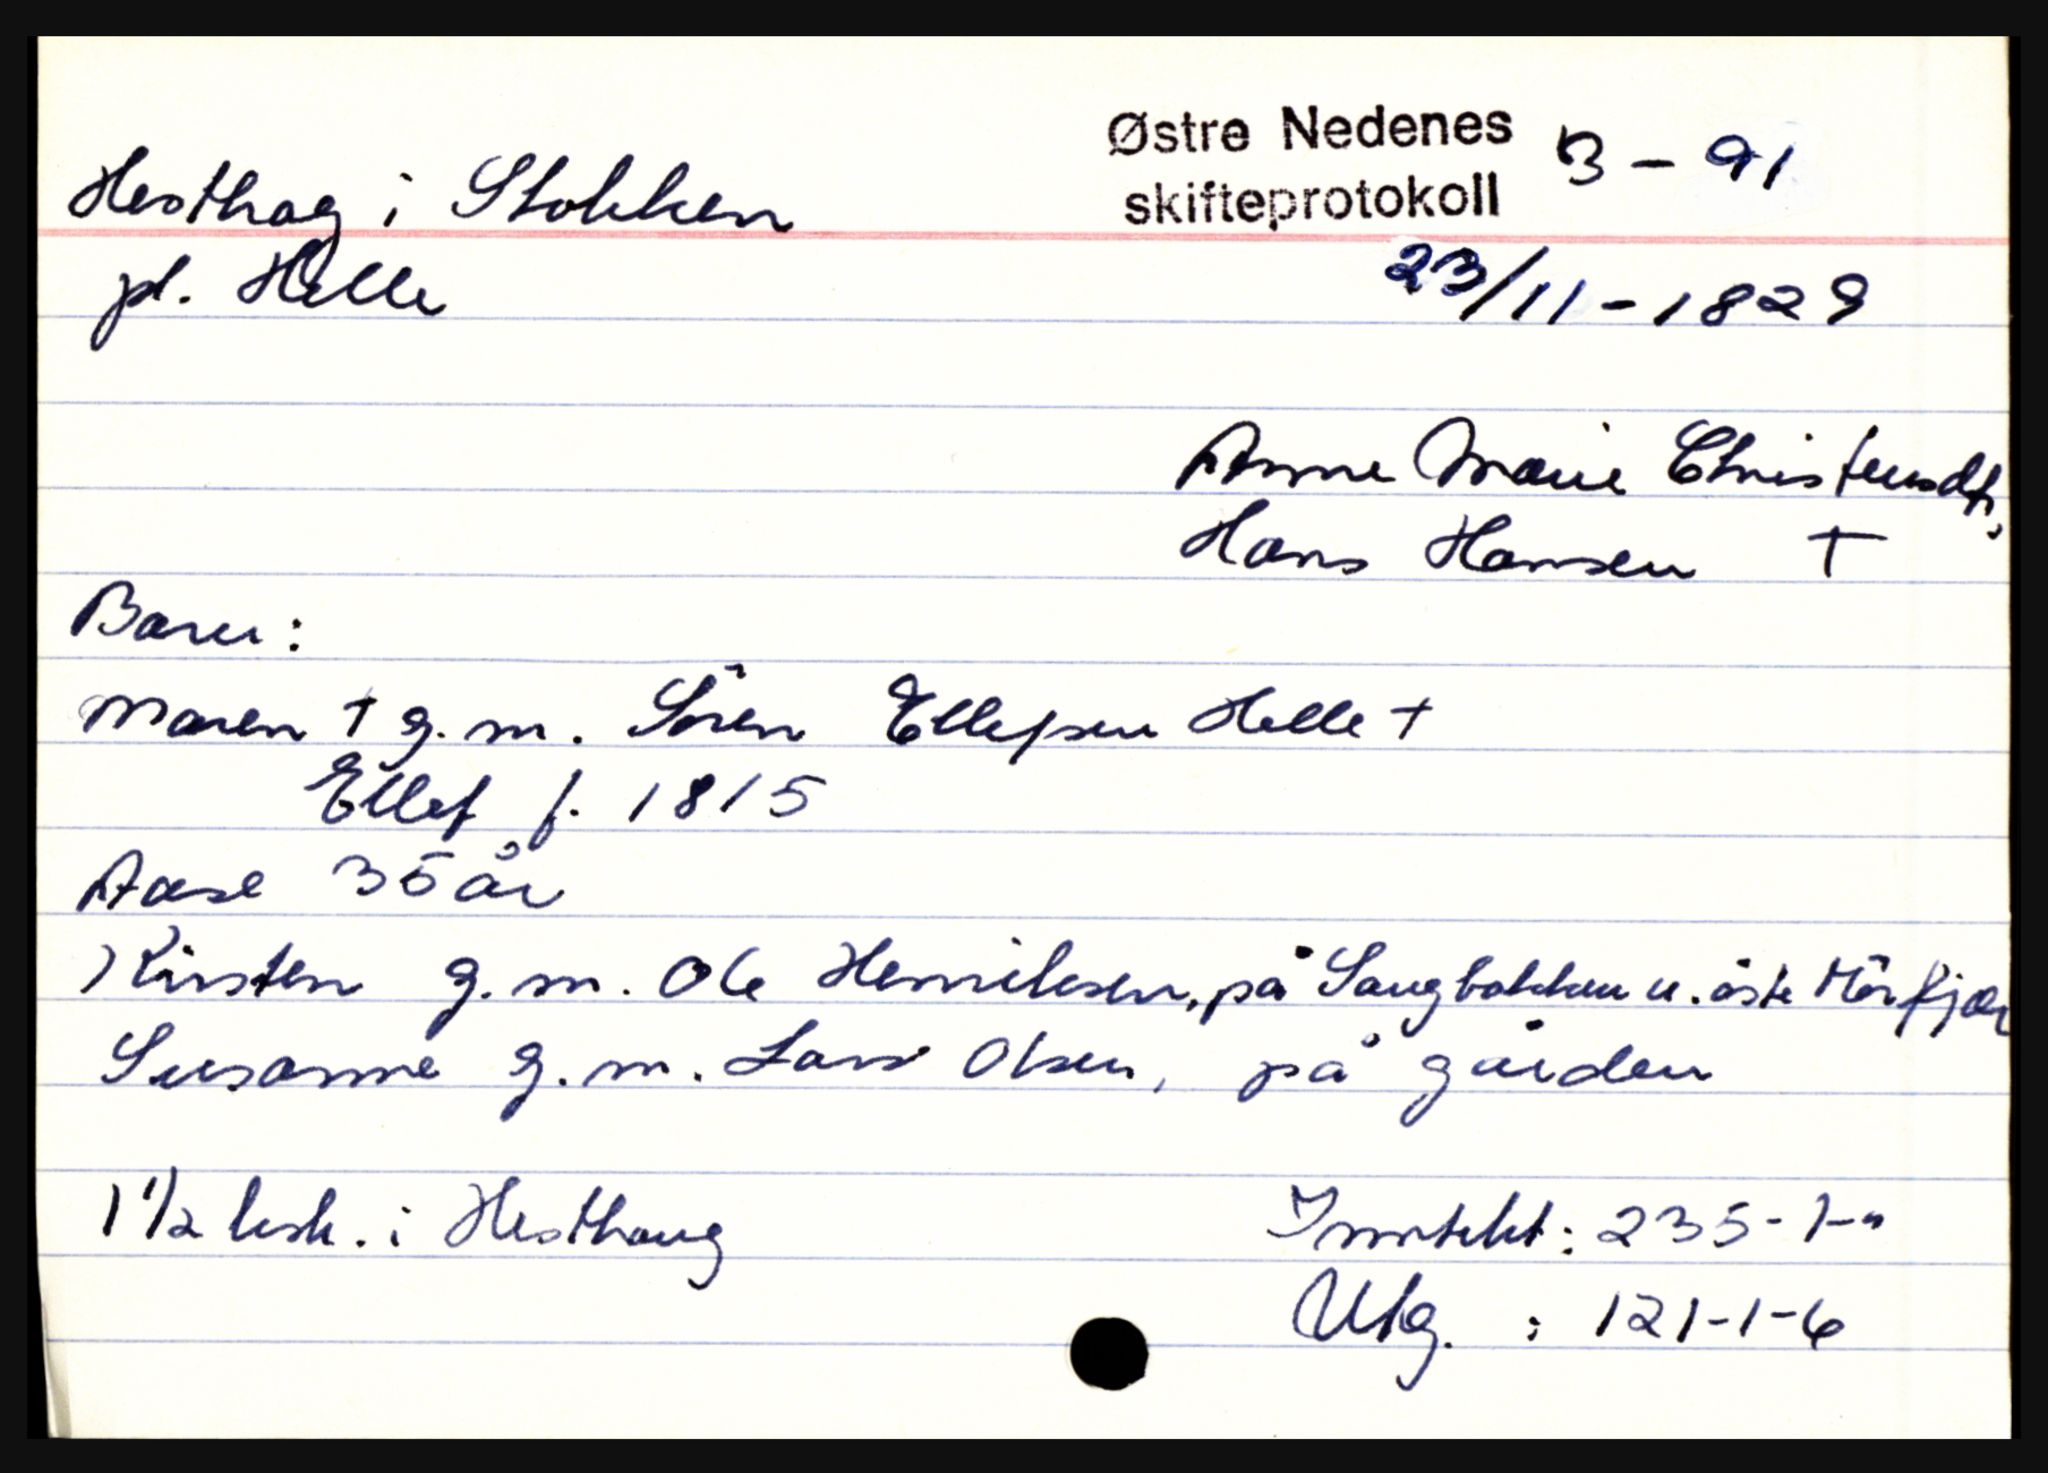 Østre Nedenes
skifteprotokoll
B - 91
Hesthag i Stokken
pl. Helle
23/11-1829
Anne Marie Christensdtr.
Hans Hansen †
Barn:
Maren † g.m. Sören Ellefsen Helle †
Ellef f. 1815
Aase 35 år
Kirsten g.m. Ole Henriksen, på Saugbakken u. öste Mörfjær
Susanne g.m. Lars Olsen, på gården
1 1/2 besk. i Hesthaug
Inntekt: 235-1-"
Utg. : 121-1-6